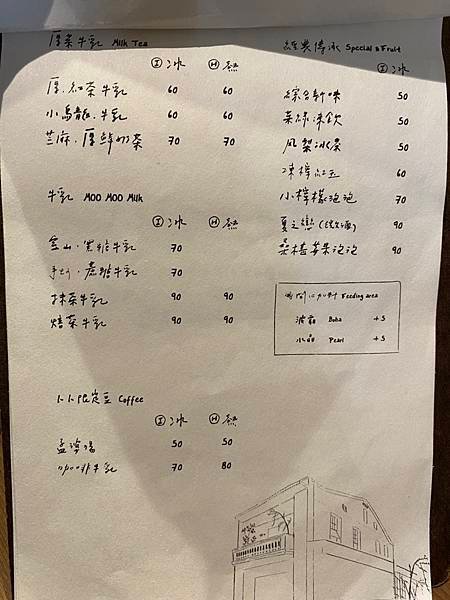 厚茶牛乳 Milk Tea
Ⓘ 冰 Ⓗ 熱
厚.紅茶牛乳 60 60
小烏龍.牛乳 60 60
芝麻.厚鮮奶茶 70 70
牛乳 MOO MOO Milk
Ⓘ 冰 Ⓗ 熱
金山.黑糖牛乳 70
手工.蔗糖牛乳 70
抹茶牛乳 90 90
焙茶牛乳 90 90
Coffee
Ⓘ 冰 Ⓗ 熱
50 50
咖啡牛乳 70 80
經典傳承 Special & Fruit
Ⓘ 冰
50
50
鳳梨冰茶 50
凍檸紅玉 60
小檸檬泡泡 70
夏之戀 90
桑椹莓果泡泡 90
Feeding area
波霸 Boba +5
水晶 Pearl +5